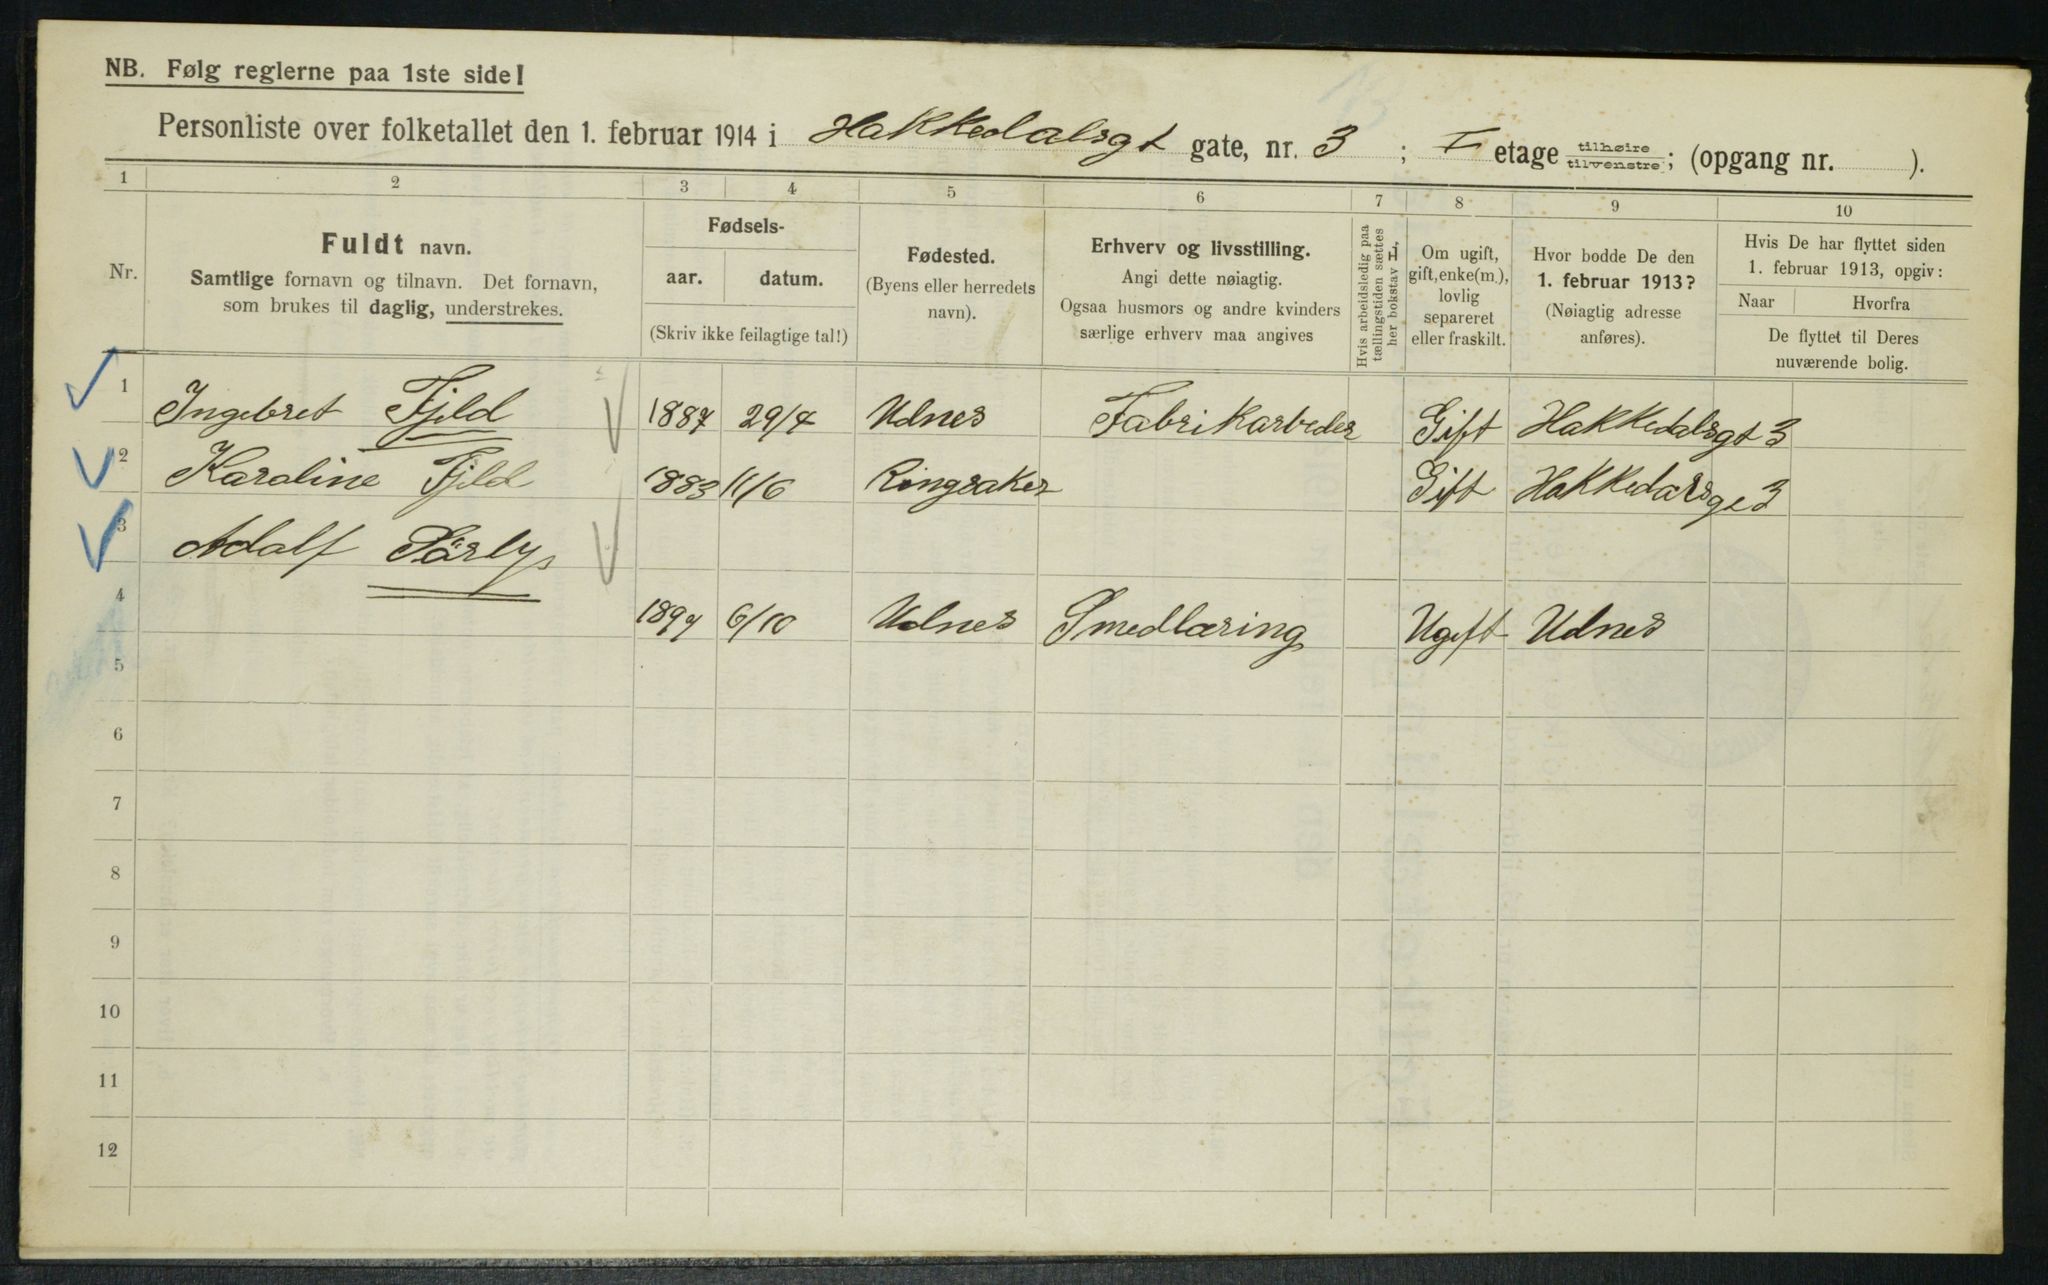 NB. Følg reglerne paa 1ste side!
Personliste over folketallet den 1. februar 1914 i Hakkedalsgt gate, nr. 3 ; I etage tilhøire tilvenstre; (opgang nr. ).
1 2 3 4 5 6 7 8 9 10
Nr.
Fuldt navn.
Samtlige fornavn og tilnavn. Det fornavn,
som brukes til daglig, understrekes.
Fødsels-
aar. datum.
(Skriv ikke feilagtige tal!)
Fødested.
(Byens eller herredets
navn).
Erhverv og livsstilling.
Angi dette nøiagtig.
Ogsaa husmors og andre kvinders
særlige erhverv maa angives
Hvis arbeidsledig paa
tællingstiden sættes
her bokstav L.
Om ugift,
gift, enke(m.),
lovlig
separeret
eller fraskilt.
Hvor bodde De den
1. februar 1913?
(Nøiagtig adresse
anføres).
Hvis De har flyttet siden
1. februar 1913, opgiv:
Naar Hvorfra
De flyttet til Deres
nuværende bolig.
1 Ingebret Fjeld 1887 29/4 Udnes Fabrikarbeder Gift Hakkedalsgt 3
2 Karoline Fjeld 1883 11/6 Ringsaker Gift Hakkedarsge 3
3 Adalf Sörly
4 1897 6/10 Udnes Smedlæring Ugift Udnes
5
6
7
8
9
10
11
12